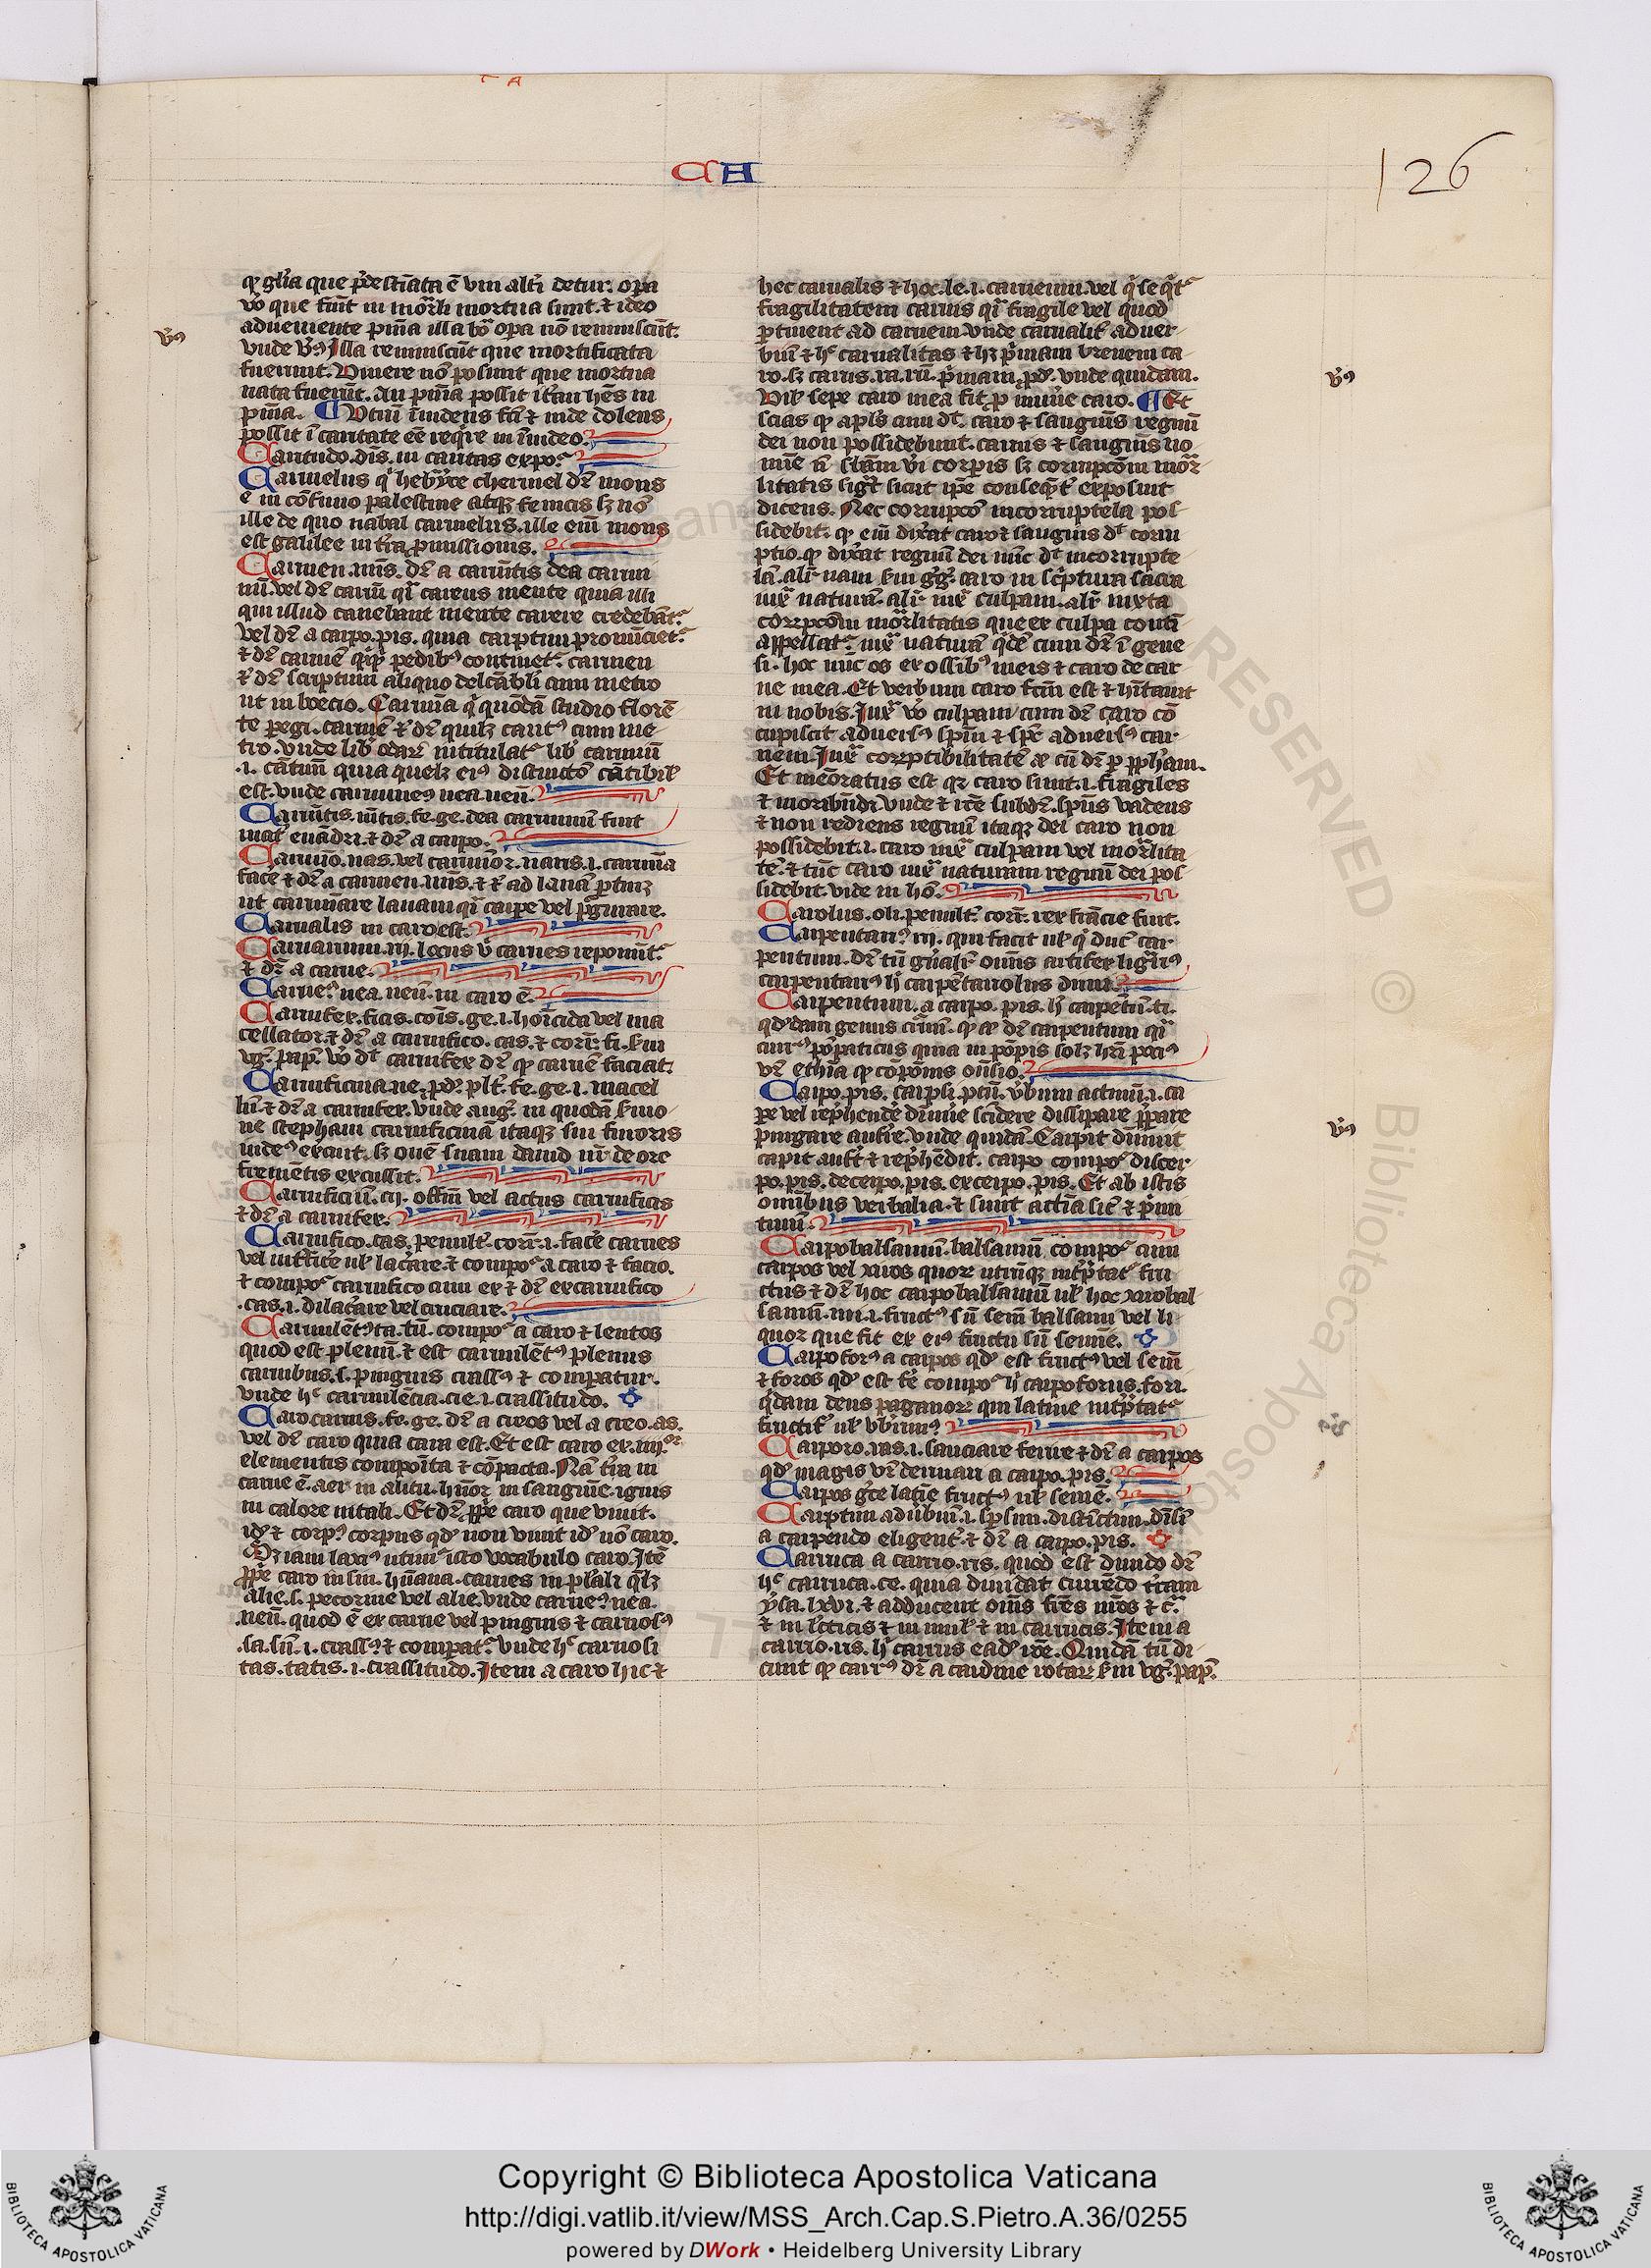 CA
126
qꝫ glīa que p̄destīata ē vni alt̄i detur. oꝑa
v̊o que fiūt in mōrli mortua sunt. ⁊ ideo
adueniente pnīa illa bo oꝑa nō reuiuiscūt.
vnde v̄ꝰ Illa reuiuiscūt que mortificata
fuerunt. Viuere nō possunt que mortua
nata fuerūt. An pnīa possit it̄ari hēs in
pnīa. ¶ Vtrū īuidens
possit ī caritate eē req̄re in īuideo.
Caritudo. dis. in caritas expoᷤ.
Carmelus qͥ hebrayce chermel dr̄ mons
ē in cōfinio palestine atqꝫ fenicis sꝫ nō
ille de quo nabal carmelus. ille enī mons
est galilee in t̄ra ꝓmissionis.
Carmen. inis. dr̄ a carmētis dea carmi
nū. vel dr̄ carmē qͣi carens mente quia illi
qui illud canebant mente carere credebātᷣ.
vel dr̄ a carpo. pis. quia carptim pronūcietᷣ.
⁊ dr̄ carmē qͥcqͥd pedibꝰ continetᷣ. carmen
⁊̄ dr̄ scriptum aliquo delcābli cum metro
ut in boecio. Carmīa qͥ quōdā studio florē
te ꝑegi. carmē ⁊̄ dr̄ quilꝫ cantꝰ cum me
tro. vnde lib̄ odaꝝ intitulatᷣ lib̄ carminū
.i. cātuū quia quelꝫ eiꝰ distinctō cātibil̄
est. vnde carmineꝰ nea neū.
Carmētis. mētis. fe. ge. dea carminū fuit
mat̄ euādri. ⁊ dr̄ a carpo.
Carmīo. nas. vel carminor. naris. i. carmīa
fac̄e ⁊ dr̄ a carmen. inis. ⁊ ⁊̄ ad lanā ꝑtinꝫ
ut carminare lanam qͣi carpe vel p̄gnare.
Carnalis in caro est.
Carnarium. rij. locus vᷦ carnes reponūtᷣ
⁊ dr̄ a carne.
Carneꝰ nea. neū. in caro ē.
Carnifex. ficis. cōis. ge. i. hoīcida vel ma
cellator. ⁊ dr̄ a carnifico. cas. ⁊ corr̄. fi. km̄
vgᷣ. pap̄. v̊o dt̄ carnifex dr̄ qꝫ carnē faciat.
Carnificina. ne. ꝓd̄. plt̄. fe. ge. i. macel
lū. ⁊ dr̄ a carnifex. vnde augᷣ. in quodā s̄mo
ne stephani carnificinā itaqꝫ sui furoris
iudeꝰ exercuit. sꝫ ouē suam dauid nr̄ de ore
frementis excussit.
Carnificiū. cij. offm̄ vel actus carnificis
⁊ dr̄ a carnifex.
Carnifico. cas. penult̄. corr̄. i. fac̄e carnes
vel int̄fic̄e ul̄ lac̄are. ⁊ compoᷤ a caro ⁊ facio.
⁊ compoᷤ carnifico cum ex ⁊ dr̄ excarnifico
.cas. i. dilac̄are vel cruciare.
Carnulētꝰ ta. tū. compoᷤ a caro ⁊ lentos
quod est plenū. ⁊ est carnulētꝰ plenus
carnibus. s. pinguis crassꝰ ⁊ compatur.
vnde hᷣ carnulēcia. cie. i. crassitudo.
Caro carnis. fe. ge. dr̄ a creos vel a creo. as.
vel dr̄ caro quia cara est. Et est caro ex. iiijor
elementis composīta ⁊ cōpacta. Nā t̄ra in
carne ē. aer in alitu. hūor in sanguīe. ignis
in calore uitali. Et dr̄ ꝓp̄e caro que viuit.
id̄ ⁊ corpꝰ corpus qd̄ non viuit id̄ nō caro.
Etiam laxiꝰ utimᷣ isto vocabulo caro. Itē
ꝓp̄e caro in sin. hūana. carnes in pl̄ali q̄lꝫ
alie. s. pecorine vel alie. vnde carneꝰ nea.
neū. quod ē ex carne vel pinguis ⁊ carnosꝰ
.sa. sū. i. crassꝰ ⁊ comparatᷣ vnde hᷣ carnosi
tas. tatis. i. crassitudo. Item a caro hic ⁊
hec carnalis ⁊ hoc. le. i. carneum. vel qͥ seqͥtᷣ
fragilitatem carnis qͣi fragile vel quod
ꝑtinent ad carnem. vnde carnalit̄ aduer
biū ⁊ hᷣ carnalitas ⁊ hꝫ p̄mam breuem ca
ro. sꝫ carus. ra. rū. p̄mam ꝓd̄. vnde quidam.
Vil̄ sepe caro mea fit ꝓ munīe caro. ¶ Et
scias qꝫ apl̄s cum dt̄ caro ⁊ sanguis regnū
dei non possidebunt. carnis ⁊ sanguis no
mīe ñ sb̄am vī corꝑis sꝫ corrupcōm mōr
litatis sigt̄ sicut ip̄e conseqͥnt̄ exposuit
dicens. Nec corrupcō incorruptela pos
sidebit. qꝫ enī dixat caro ⁊ sanguis dt̄ corru
ptio. qꝫ dixat regnū dei nūc dt̄ incorrupte
lā. alr̄ nam km̄ gᷣgᷣ. caro in sc̄ptura sacra
iuxᷓ naturā. alr̄ iuxᷓ culpam. alr̄ iuxta
corrupcōm mōrlitatis que ex culpa contī
appellatᷣ. iuxᷓ naturā qͥdē cum dr̄ ī gene
si. hoc nūc os ex ossibꝰ meis ⁊ caro de car
ne mea. Et verbum caro fcm̄ est ⁊ hītauit
in nobis. Iuxᷓ v̊o culpam cum dr̄ caro cō
cupiscit aduersꝰ spm̄ ⁊ spc̄ aduersꝰ car
nem. Iuxᷓ corruptibilitatē cū dr̄ ꝑ ꝓph̄am.
Et memoratus est qꝛ caro sunt. i. fragiles
⁊ moribūdi. vnde ⁊ ītē subdr̄. spūs vadens
⁊ non rediens regnū itaqꝫ dei caro non
possidebit. i. caro iuxᷓ culpam vel mōrlita
tē. ⁊ tūc caro iuxᷓ naturam regnū dei pos
sidebit. vide in hō.
Carolus. oli. penult̄. corr̄. rex francie fuit.
Carpentariꝰ rij. qui facit ul̄ qͥ ducit car
pentum. dr̄ tn̄ gn̄alr̄ omīs artifex lignariꝰ
carpentariꝰ hͥ carpētariolus dimi.
Carpentum. a carpo. pis. hͦ carpētū. ti.
qd̄dam genus curruū. qꝫ dr̄ carpentum qͣi
currꝰ pōpaticus quia in pōpis solꝫ
vt ethīa qꝫ cōpōīs
Carpo. pis. carpsi. ptū. v̄bum actiuū. i. ca
pe vel rep̄hende dimine scidere dissipare p̄pare
pingare aufr̄e. vnde quidā. Carpit diminuit
capit aufert ⁊ rep̄hēdit. carpo compoᷤ discer
po. pis. decerpo. pis. excerpo. pis. Et ab istis
omībus verbalia. ⁊ sunt actīa sic̄ ⁊ p̄mi
tiuū.
Carpobalsamū. balsamū compoᷤ cum
carpos vel xilos quoꝝ utrūqꝫ int̄p̄tatᷣ fru
ctus ⁊ dr̄ hoc carpobalsamū ul̄ hoc xilobal
samū. mi. i. fructꝰ sū semē balsami vel li
quor que fit ex eiꝰ fructu sū semīe.
Carpoforꝰ a carpos qd̄ est fructꝰ vel semē
⁊ foros qd̄ est fe compoᷤ hͥ carpoforus. fori.
qͥdam deus paganoꝝ qui latine int̄p̄tatᷣ
fructifer ul̄ vb̄rimꝰ
Carporo. ras. i. sauciare ferire ⁊ dr̄ a carpos
qd̄ magis vr̄ deriuari a carpo. pis.
Carpos gc̄e latīe fructꝰ ul̄ semē.
Carptim adūbiū. i. sp̄sim. distīctim. diuisī
a carpendo eligent̄. ⁊ dr̄ a carpo. pis.
Carruca a carrio. ris. quod est diuido dr̄
hᷣ carruca. ce. quia diuidat currēdo t̄ram
ysa. lxvi. ⁊ adducent omīs frēs urōs ⁊ cᷣ.
⁊ in lēcticis ⁊ in mul̄ ⁊ in carrucis. Item a
carrio. ris. hͥ carrus ead̄ rōe. Quidā tn̄ di
cunt qꝫ carrꝰ dr̄ a cardine rotaꝝ km̄ vgᷣ. pap̄.
v̄ꝰ
v̄ꝰ
v̄ꝰ
Copyright © Biblioteca Apostolica Vaticana
http://digi.vatlib.it/view/MSS_Arch.Cap.S.Pietro.A.36/0255
powered by DWork • Heidelberg University Library
BIBLIOTECA APOSTOLICA VATICANA
BIBLIOTECA APOSTOLICA VATICANA
RESERVED © Biblioteca Aposto